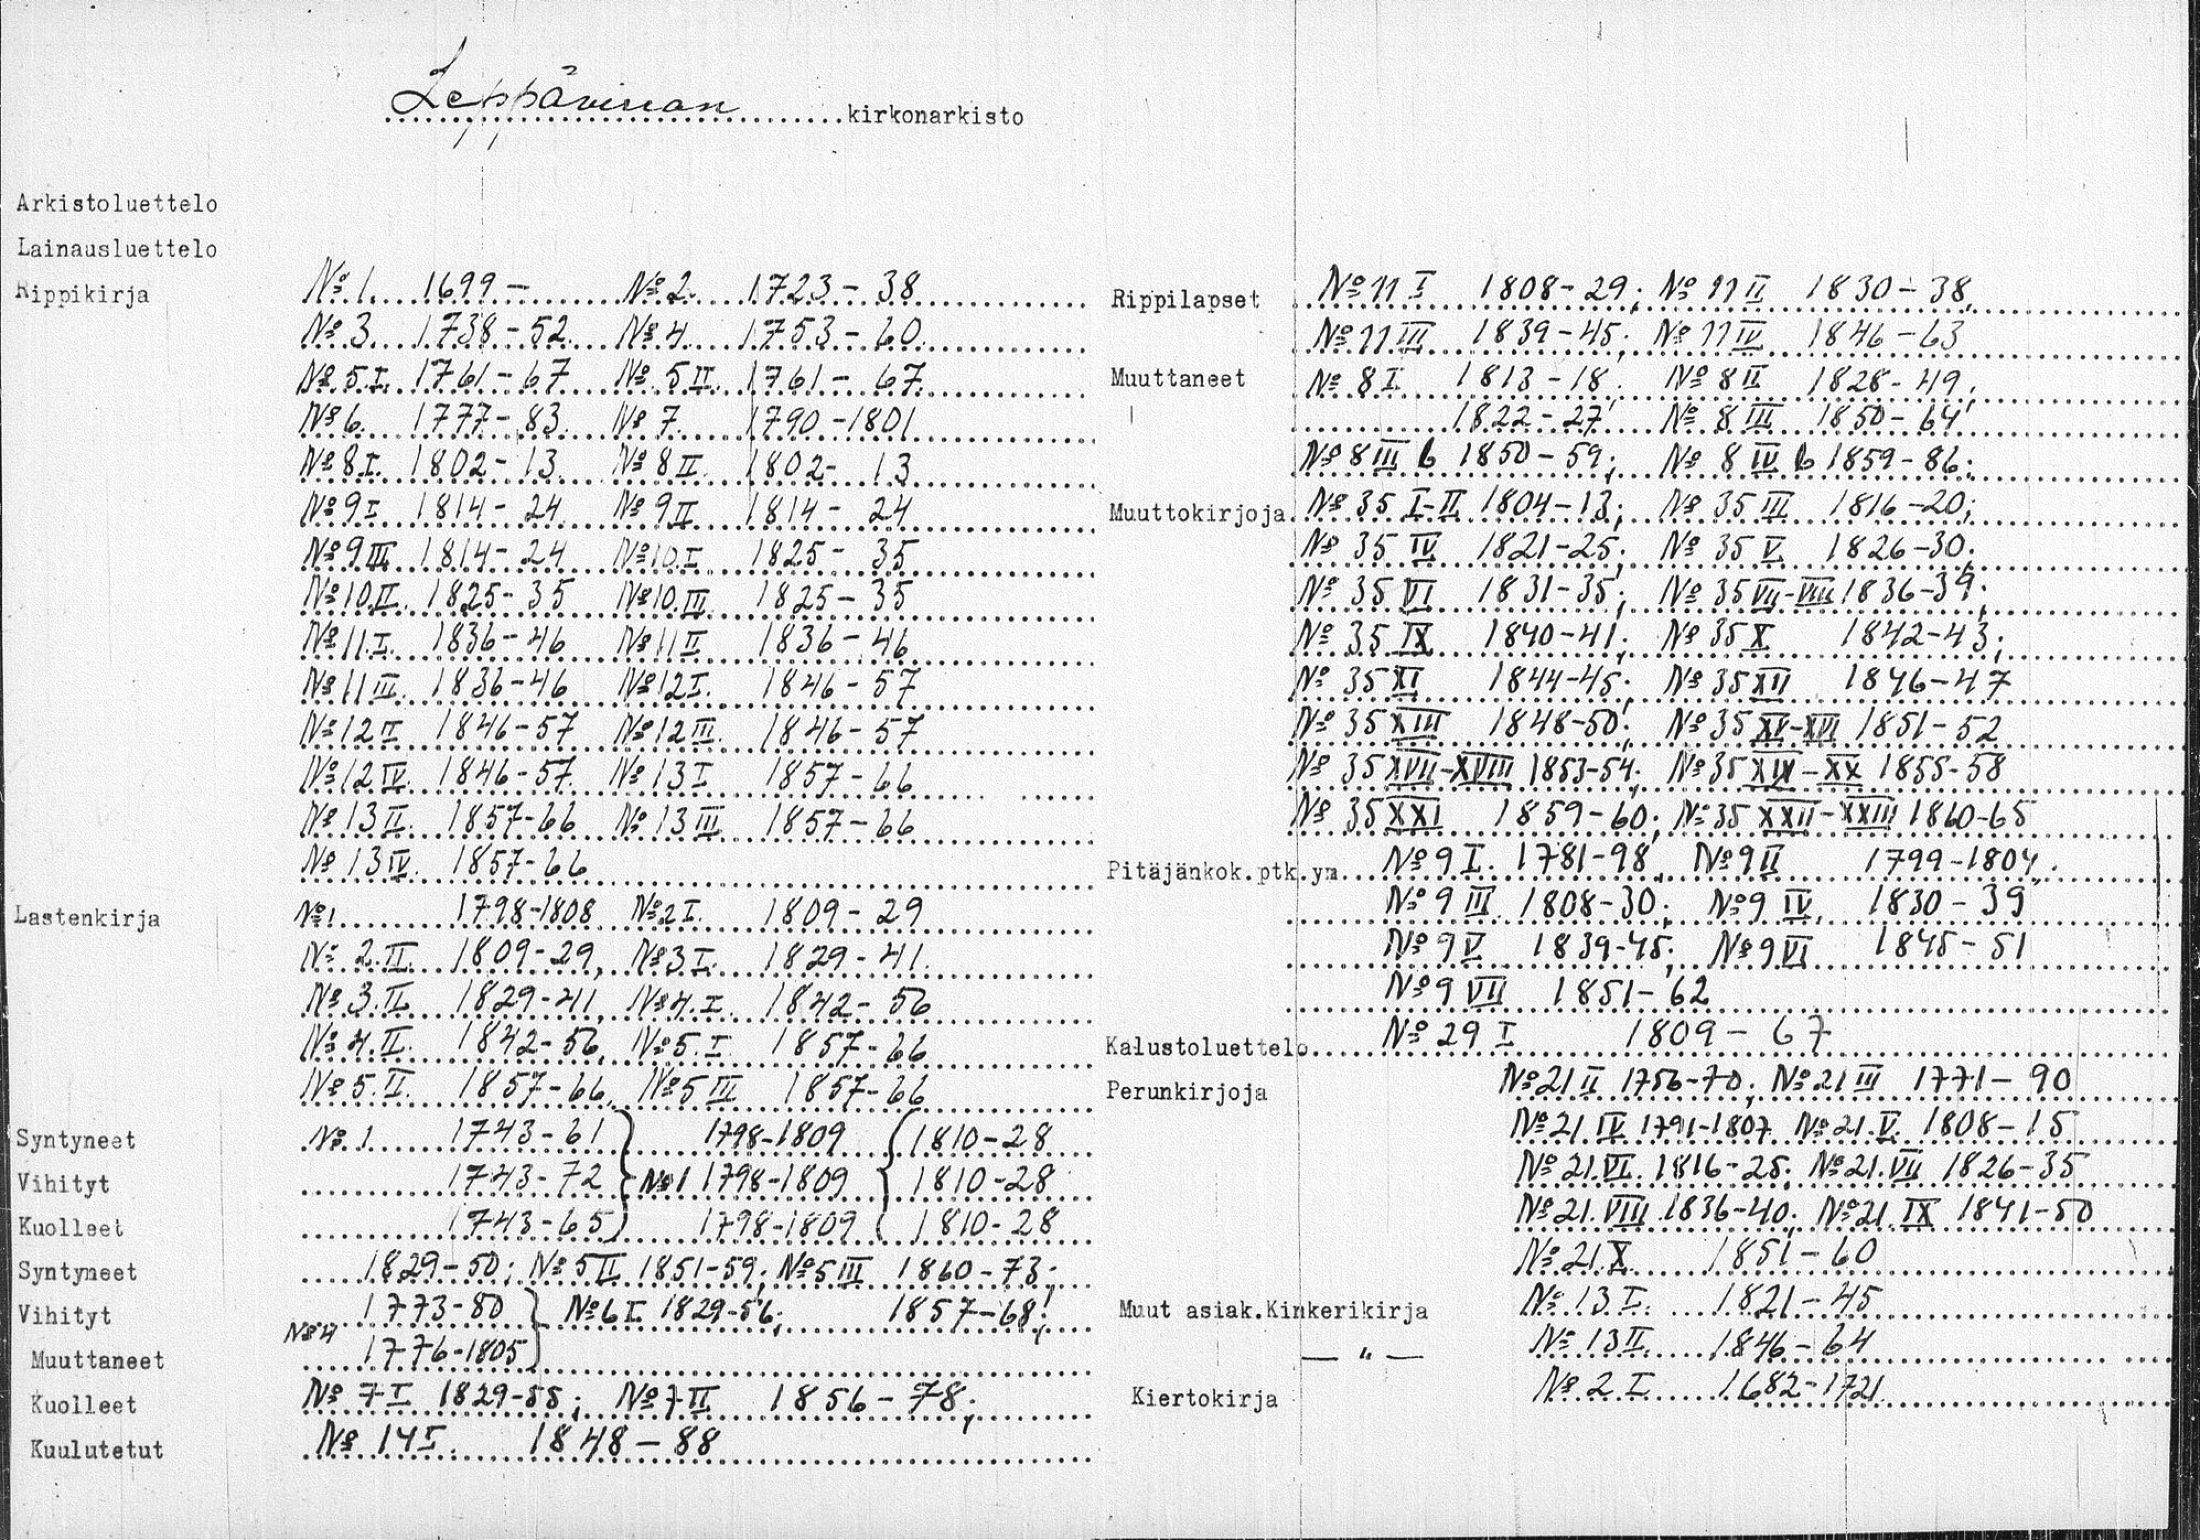 Leppävirran kirkonarkisto
Arkistoluettelo
Lainausluettelo
Rippikirja № 1. 1699- № 2. 1723-38
№ 3 1738-52 № 4. 1753-60
№ 5 I. 1761-67 № 5 II. 1761-67
№ 6. 1777-83. № 7. 1790-1801
№ 8 I. 1802-13 № 8 II. 1802-13
№ 9 I 1814-24 № 9 II 1814-24
№ 9 III 1814-24 № 10. I 1825-35
№ 10. II. 1825-35 № 10. III 1825-35
№ 11. I. 1836-46 № 11 II 1836-46
№ 11 III. 1836-46 № 12 I. 1846-57
№ 12 II 1846-57 № 12 III. 1846-57
№ 12 IV. 1846-57. № 13 I 1857-66
№ 13 II. 1857-66 № 13 III 1857-66
№ 13 IV. 1857-66
Lastenkirja № 1. 1798-1808 № 2 I. 1809-29
№ 2. II. 1809-29, № 3 I. 1829-41.
№ 3. II 1829-41, № 4. I. 1842-56
№ 4. II. 1842-56, № 5. I 1857-66
№ 5. II. 1857-66, № 5 III 1857-66
Syntyneet № 1 1743-61 } 1798-1809 { 1810-28
Vihityt 1743-72 } № 1 1798-1809 { 1810-28
Kuolleet 1743-65 } 1798-1809 { 1810-28
Syntyneet 1829-50; № 5 II 1851-59; № 5 III 1860-73;
Vihityt 1773-80 } № 6 I 1829-56; 1857-68;
№ 4
Muuttaneet 1776-1805 }
Kuolleet № 7 I 1829-55; № 7 II 1856-78;
Kuulutetut № 14 I. 1848-88
Rippilapset № 11 I 1808-29; № 11 II 1830-38,
№ 11 III 1839-45; № 11 IV 1846-63
Muuttaneet № 8 I 1813-18; № 8 II 1828-49;
1822-27; № 8 III 1850-64
№ 8 III b 1850-59; № 8 IV b 1859-86;
Muuttokirjoja № 35 I-II 1804-13; № 35 III 1816-20;
№ 35 IV 1821-25; № 35 V 1826-30;
№ 35 VI 1831-35; № 35 VII-VIII 1836-39;
№ 35 IX 1840-41; № 35 X 1842-43;
№ 35 XI 1844-45; № 35 XII 1846-47
№ 35 XIII 1848-50; № 35 XV-XVI 1851-52
№ 35 XVII-XVIII 1853-54; № 35 XIX-XX 1855-58
№ 35 XXI 1859-60; № 35 XXII-XXIII 1860-65
Pitäjänkok.ptk.ym. № 9 I. 1781-98, № 9 II 1799-1804,
№ 9 III 1808-30; № 9 IV, 1830-39
№ 9 V 1839-45; № 9 VI 1845-51
№ 9 VII 1851-62
Kalustoluettelo № 29 I 1809-67
Perunkirjoja № 21 II 1756-70; № 21 III 1771-90
№ 21 IV 1791-1807 № 21. V. 1808-15
№ 21. VI. 1816-25; № 21. VII 1826-35
№ 21. VIII 1836-40; № 21. IX 1841-50
№ 21. X 1851-60
Muut asiak.Kinkerikirja № 13 I. 1821-45
— " — № 13 II 1846-64
Kiertokirja № 2 I 1682-1721